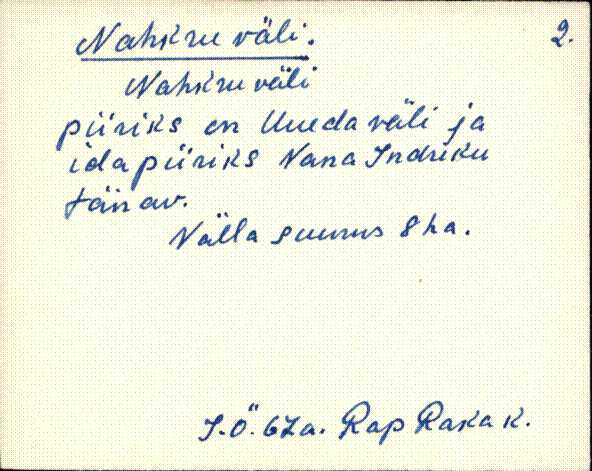 Nahkru väli. 2.
Nahkru väli
piiriks on Uueda väli ja
ida piiriks Vana Indriku
tänav.
Välla suurus 8 ha.
I.Ö. 67a. Rap Raka k.